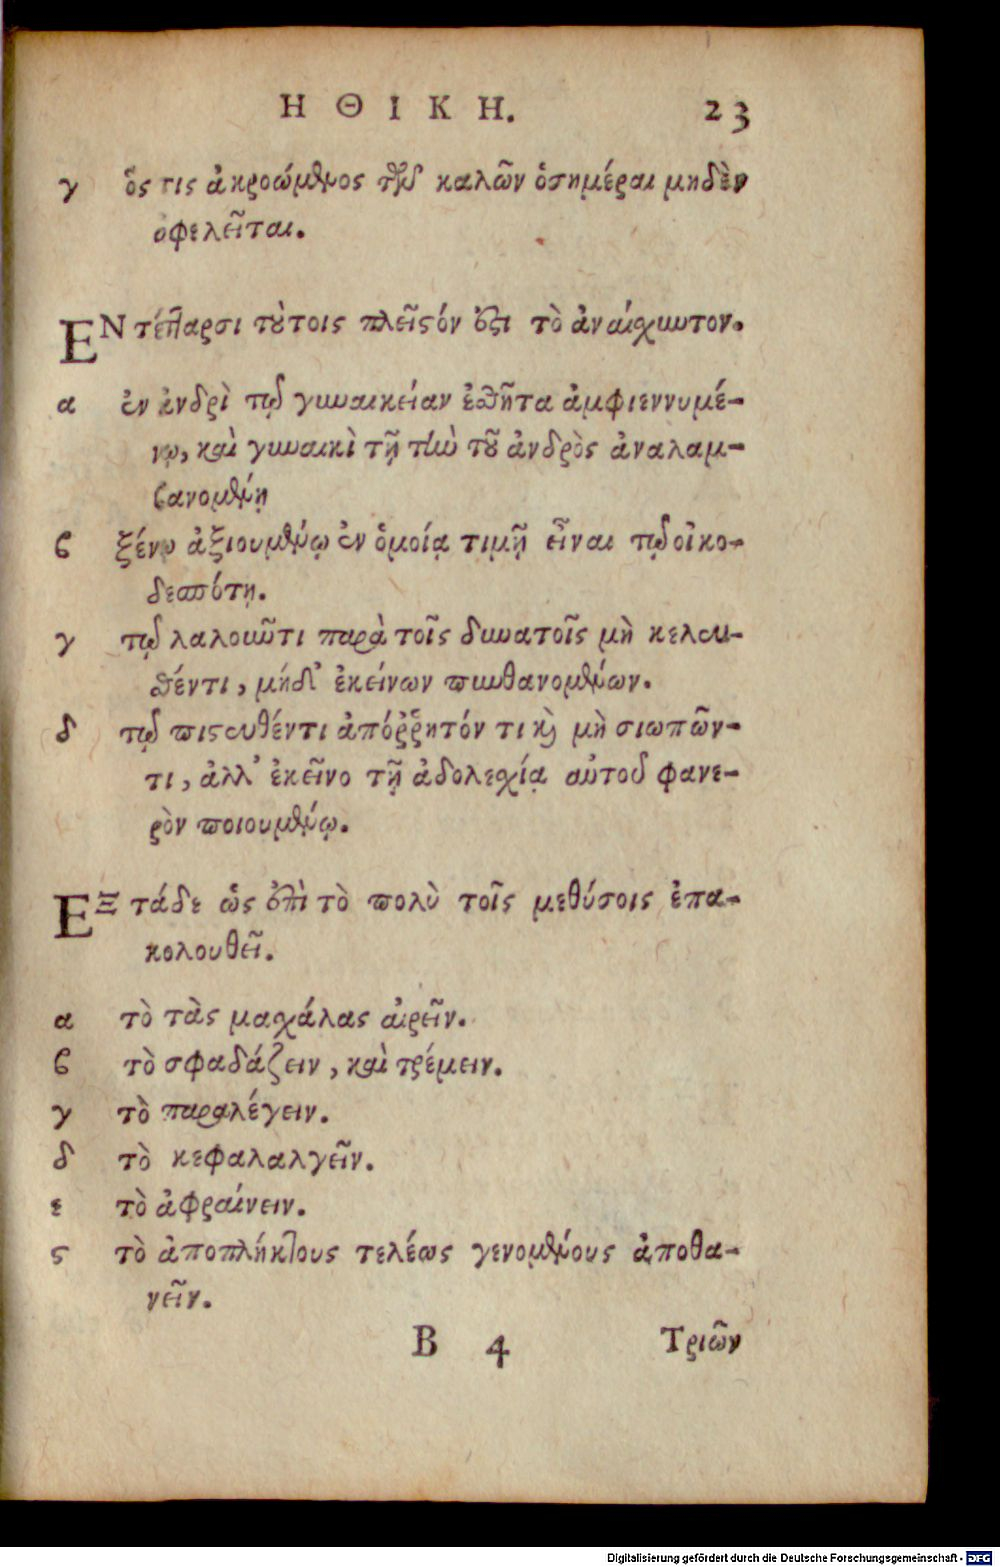 ΗΘΙΚΗ. 23
γ ὅς τις ἀκροώμενος τῶν καλῶν ὁσημέραι μηδὲν
ὀφελεῖται.
ΕΝ τέτταρσι τούτοις πλεῖστόν ἐστι τὸ ἀναίσχυντον.
α ἐν ἀνδρὶ τῷ γυναικείαν ἐσθῆτα ἀμφιεννυμέ-
νῳ, καὶ γυναικὶ τῇ τὴν τοῦ ἀνδρὸς ἀναλαμ-
βανομένῃ
β ξένῳ ἀξιουμένῳ ἐν ὁμοίᾳ τιμῇ εἶναι τῷ οἰκο-
δεσπότῃ.
γ τῷ λαλοῦντι παρὰ τοῖς δυνατοῖς μὴ κελευ-
σθέντι, μήδ' ἐκείνων πυνθανομένων.
δ τῷ πιστευθέντι ἀπόῤῥητόν τι καὶ μὴ σιωπῶν-
τι, ἀλλ' ἐκεῖνο τῇ ἀδολεχίᾳ αὐτοῦ φανε-
ρὸν ποιουμένῳ.
ΕΞ τάδε ὡς ἐπὶ τὸ πολὺ τοῖς μεθύσοις ἐπα-
κολουθεῖ.
α τὸ τὰς μαχάλας αἰρεῖν.
β τὸ σφαδάζειν, καὶ τρέμειν.
γ τὸ παραλέγειν.
δ τὸ κεφαλαλγεῖν.
ε τὸ ἀφραίνειν.
ϛ τὸ ἀποπλήκτους τελέως γενομένους ἀποθα-
νεῖν.
B 4 Τριῶν
Digitalisierung gefördert durch die Deutsche Forschungsgemeinschaft - DFG